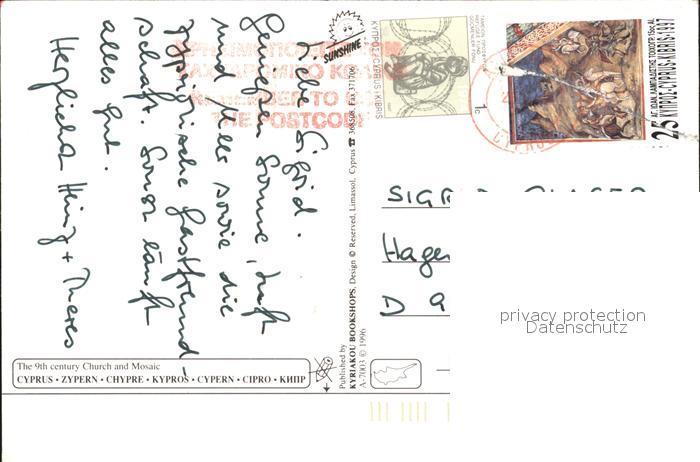 Liebe Sigrid.
Genießen Sonne, Luft
und Meer sowie die
zypriotische Gastfreund-
schaft. Sonst läuft
alles gut.
Herzlichst Heinz + Theres
SUNSHINE
ΚΥΠΡΟΣ·CYPRUS·KIBRIS
1c
ΚΥΠΡΟΣ-CYPRUS-KIBRIS-1997
25
REMEMBER TO
THE POSTCODE
Published by
KYRIAKOU BOOKSHOPS, Design © Reserved, Limassol, Cyprus ☎ 368508, Fax 371706
A-7003 © 1996
Hagen
D
privacy protection
Datenschutz
The 9th century Church and Mosaic
CYPRUS • ZYPERN • CHYPRE • KYPROS • CYPERN • CIPRO • КИПР